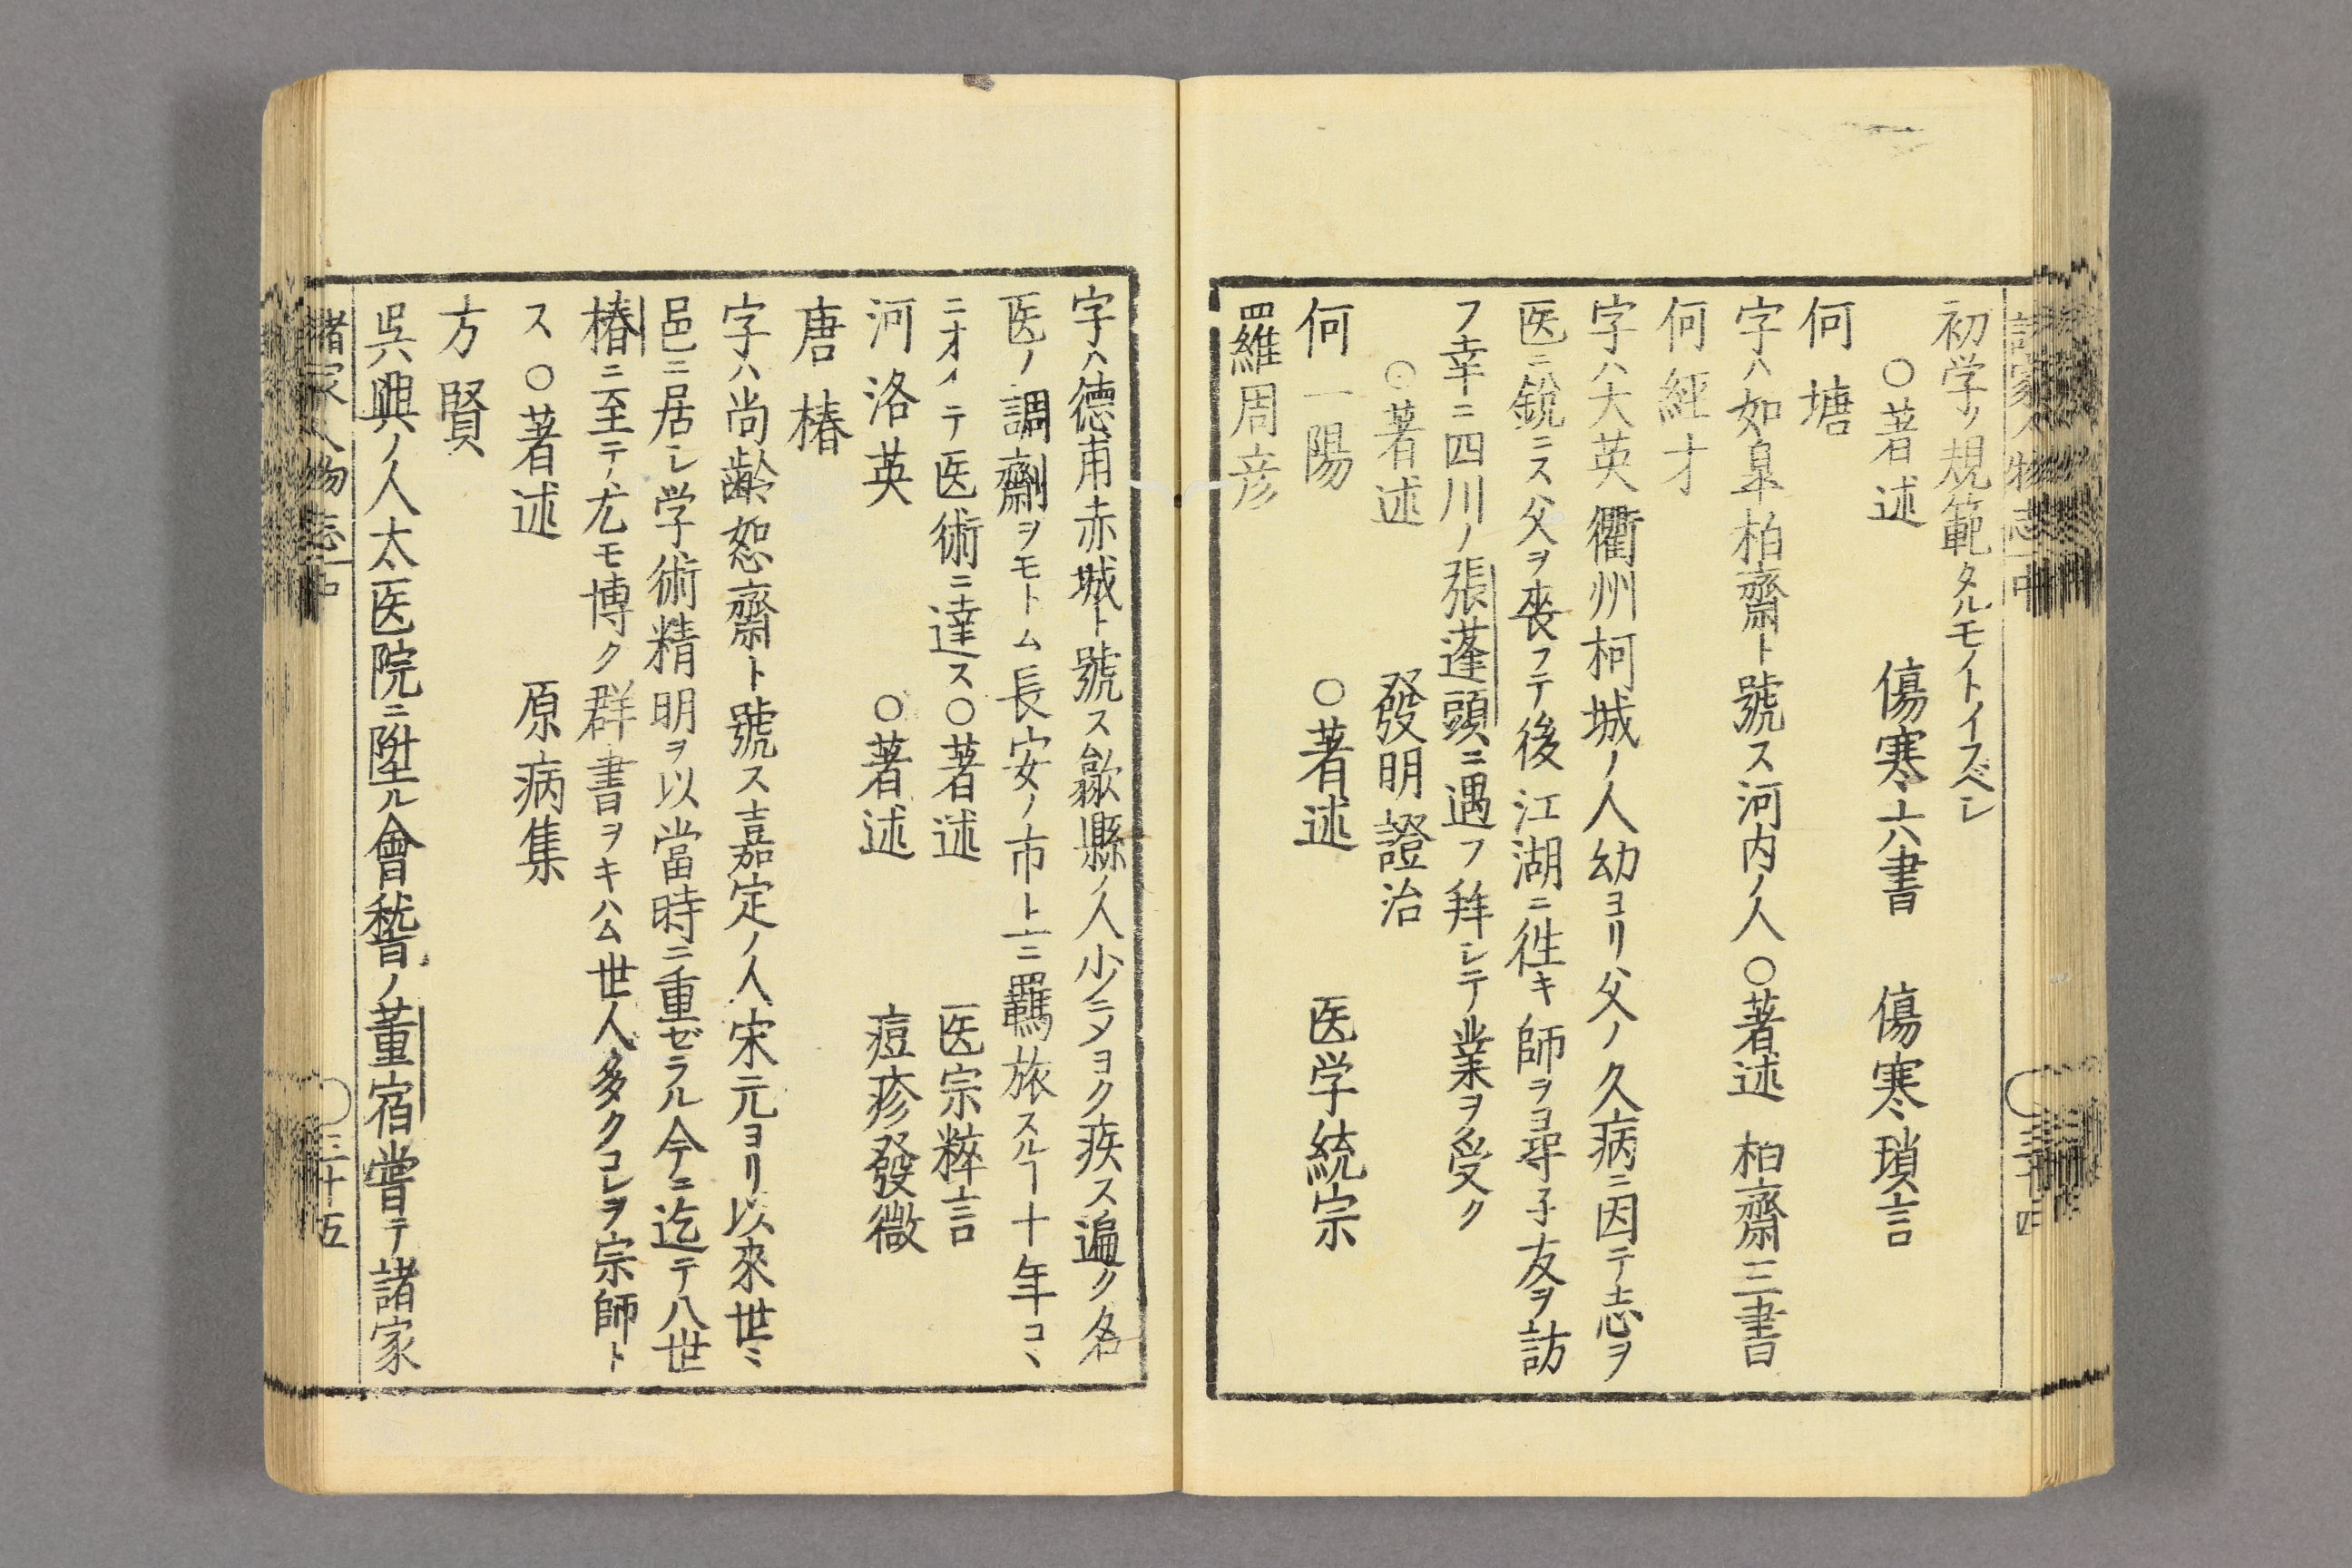 諸家人物志 中 三十四
初学ノ規範タルモノトイフベシ
○著述 傷寒六書 傷寒瑣言
何塘
字ハ如皐柏齋ト號ス河内ノ人○著述 柏齋三書
何經才
字ハ大英衢州柯城ノ人幼ヨリ父ノ久病ニ因テ志ヲ
医ニ鋭ニス父ヲ喪フテ後江湖ニ徃キ師ヲヨ尋子友ヲ訪
フ幸ニ四川ノ張蓬頭ニ遇フ拜シテ業ヲ受ク
○著述 發明證治
何一陽 ○著述 医学統宗
羅周彦
字ハ德甫赤城ト號ス歙縣ノ人少ニ〆ヨク疾ス遍ク名
医ノ調劑ヲモトム長安ノ市上ニ羇旅スルヿ十年コヽ
ニオイテ医術ニ達ス○著述 医宗粹言
河洛英 ○著述 痘疹發微
唐椿
字ハ尚齡恕齋ト號ス嘉定ノ人宋元ヨリ以來世ミ
邑ニ居シ学術精明ヲ以當時ニ重ゼラル今ニ迄テ八世
椿ニ至テ尤モ博ク群書ヲキハム世人多クコレヲ宗師ト
ス○著述 原病集
方賢
呉興ノ人太医院ニ陞ル會嵇ノ董宿嘗テ諸家
諸家人物志 中 三十五